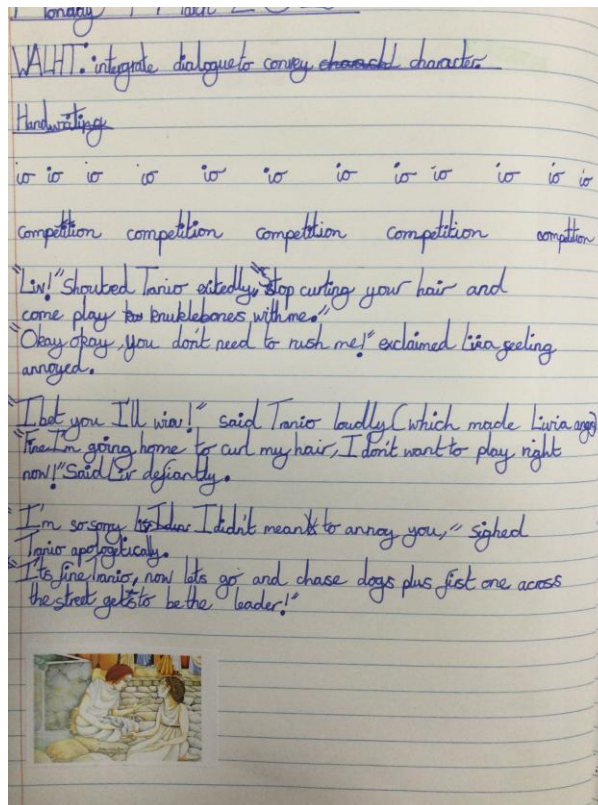 WALHT: intergrate dialogue to convey character.
Handwriting
io io io io io io io io io io io io
competition competition competition competition competition
"Liv!" Shouted Tranio exitedly, "stop curling your hair and
come play knuklebones with me."
"Okay okay, you don't need to rush me!" exclaimed Livia feeling
annoyed.
"I bet you I'll win!" said Tranio loudly (which made Livia angry)
"Fine I'm going home to curl my hair, I don't want to play right
now!" Said Liv defiantly.
"I'm so sorry I didn't mean to annoy you," sighed
Tranio apologetically.
"It's fine Tranio, now lets go and chase dogs plus fist one across
the street gets to be the leader!"